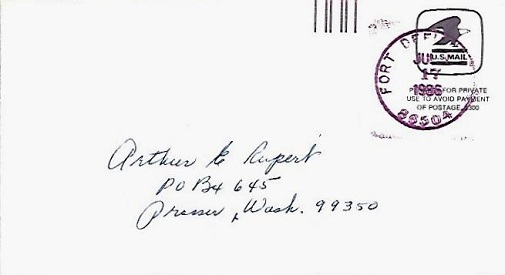 FORT DEFI
U.S.MAIL
JUL
17
1986
86504
FOR PRIVATE
USE TO AVOID PAYMENT
OF POSTAGE, $300
Arthur E Rupert
PO Box 645
Prosser, Wash. 99350